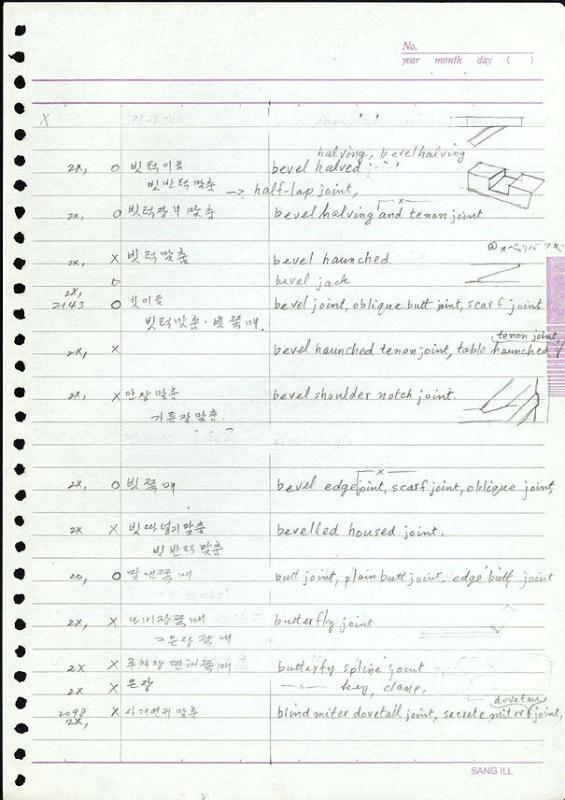 No.
year month day ( )
X
halving, bevel halving
2x, o 빗턱이음 bevel halved joint
빗반턱맞춤 → half-lap joint,
2x, o 빗턱장부맞춤 bevel halving and tenon joint
2x, x 빗턱맞춤 bevel haunched
bevel jack
2x,
2143 o 빗이음 bevel joint, oblique butt joint, scarf joint
빗턱맞춤·빗쪽매.
tenon joint,
2x, x bevel haunched tenon joint, table haunched
2x, x 안장맞춤 bevel shoulder notch joint.
가름장맞춤.
2x, o 빗쪽매 bevel edge joint, scarf joint, oblique joint,
2x x 빗따넣기맞춤 bevelled housed joint.
빗반턱맞춤
20, o 맞댄쪽매 butt joint, plain butt joint edge butt joint
2x, x 나비장쪽매 butterfly joint
은장쪽매
2x x butterfly spline joint
2x x 은장 key, clamp,
dovetail
2098
2x, x 사개연귀맞춤 blind miter dovetail joint, secrete miter joint,
SANG ILL